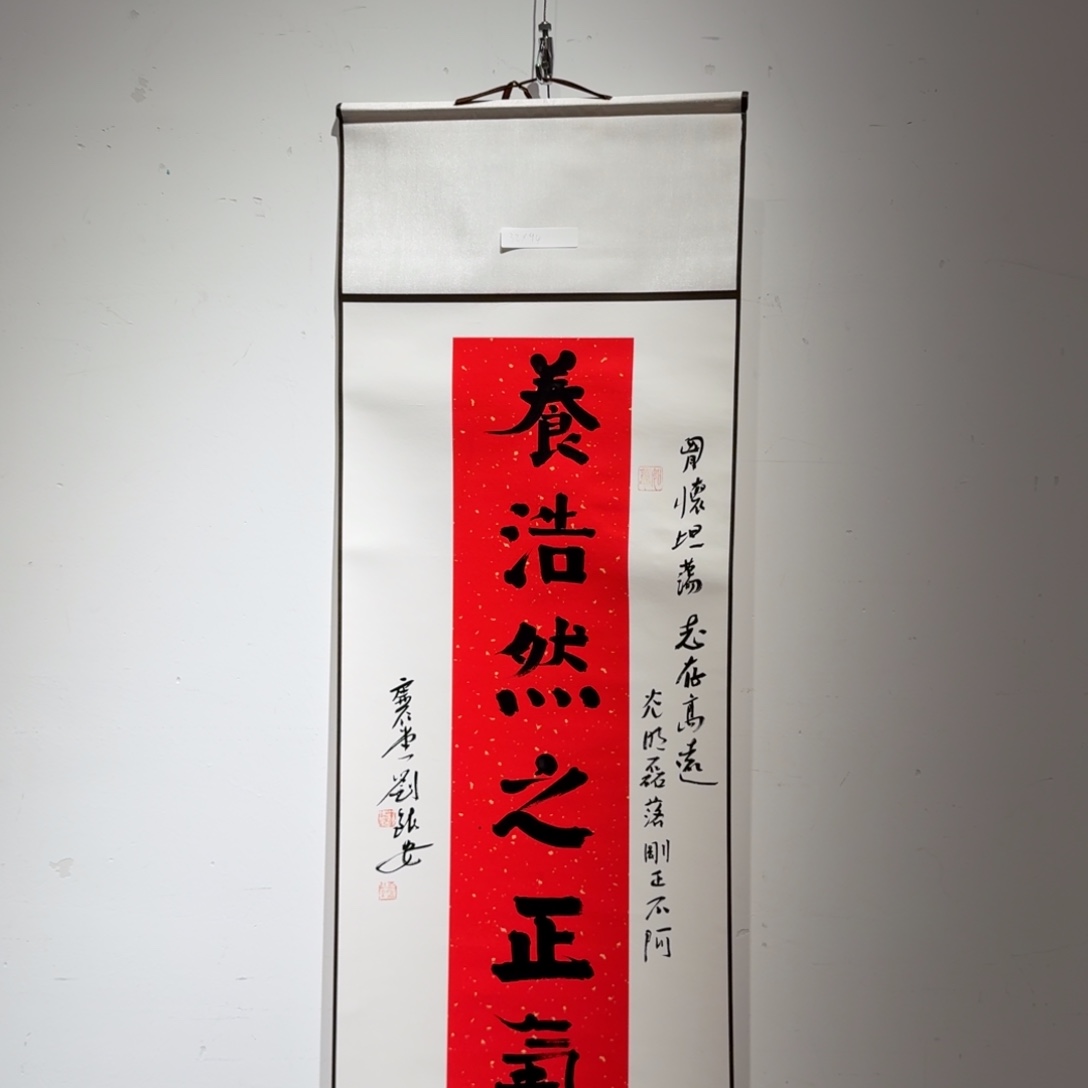 養浩然之正氣
胷懷坦蕩 志存高遠
光明磊落剛正不阿
劉